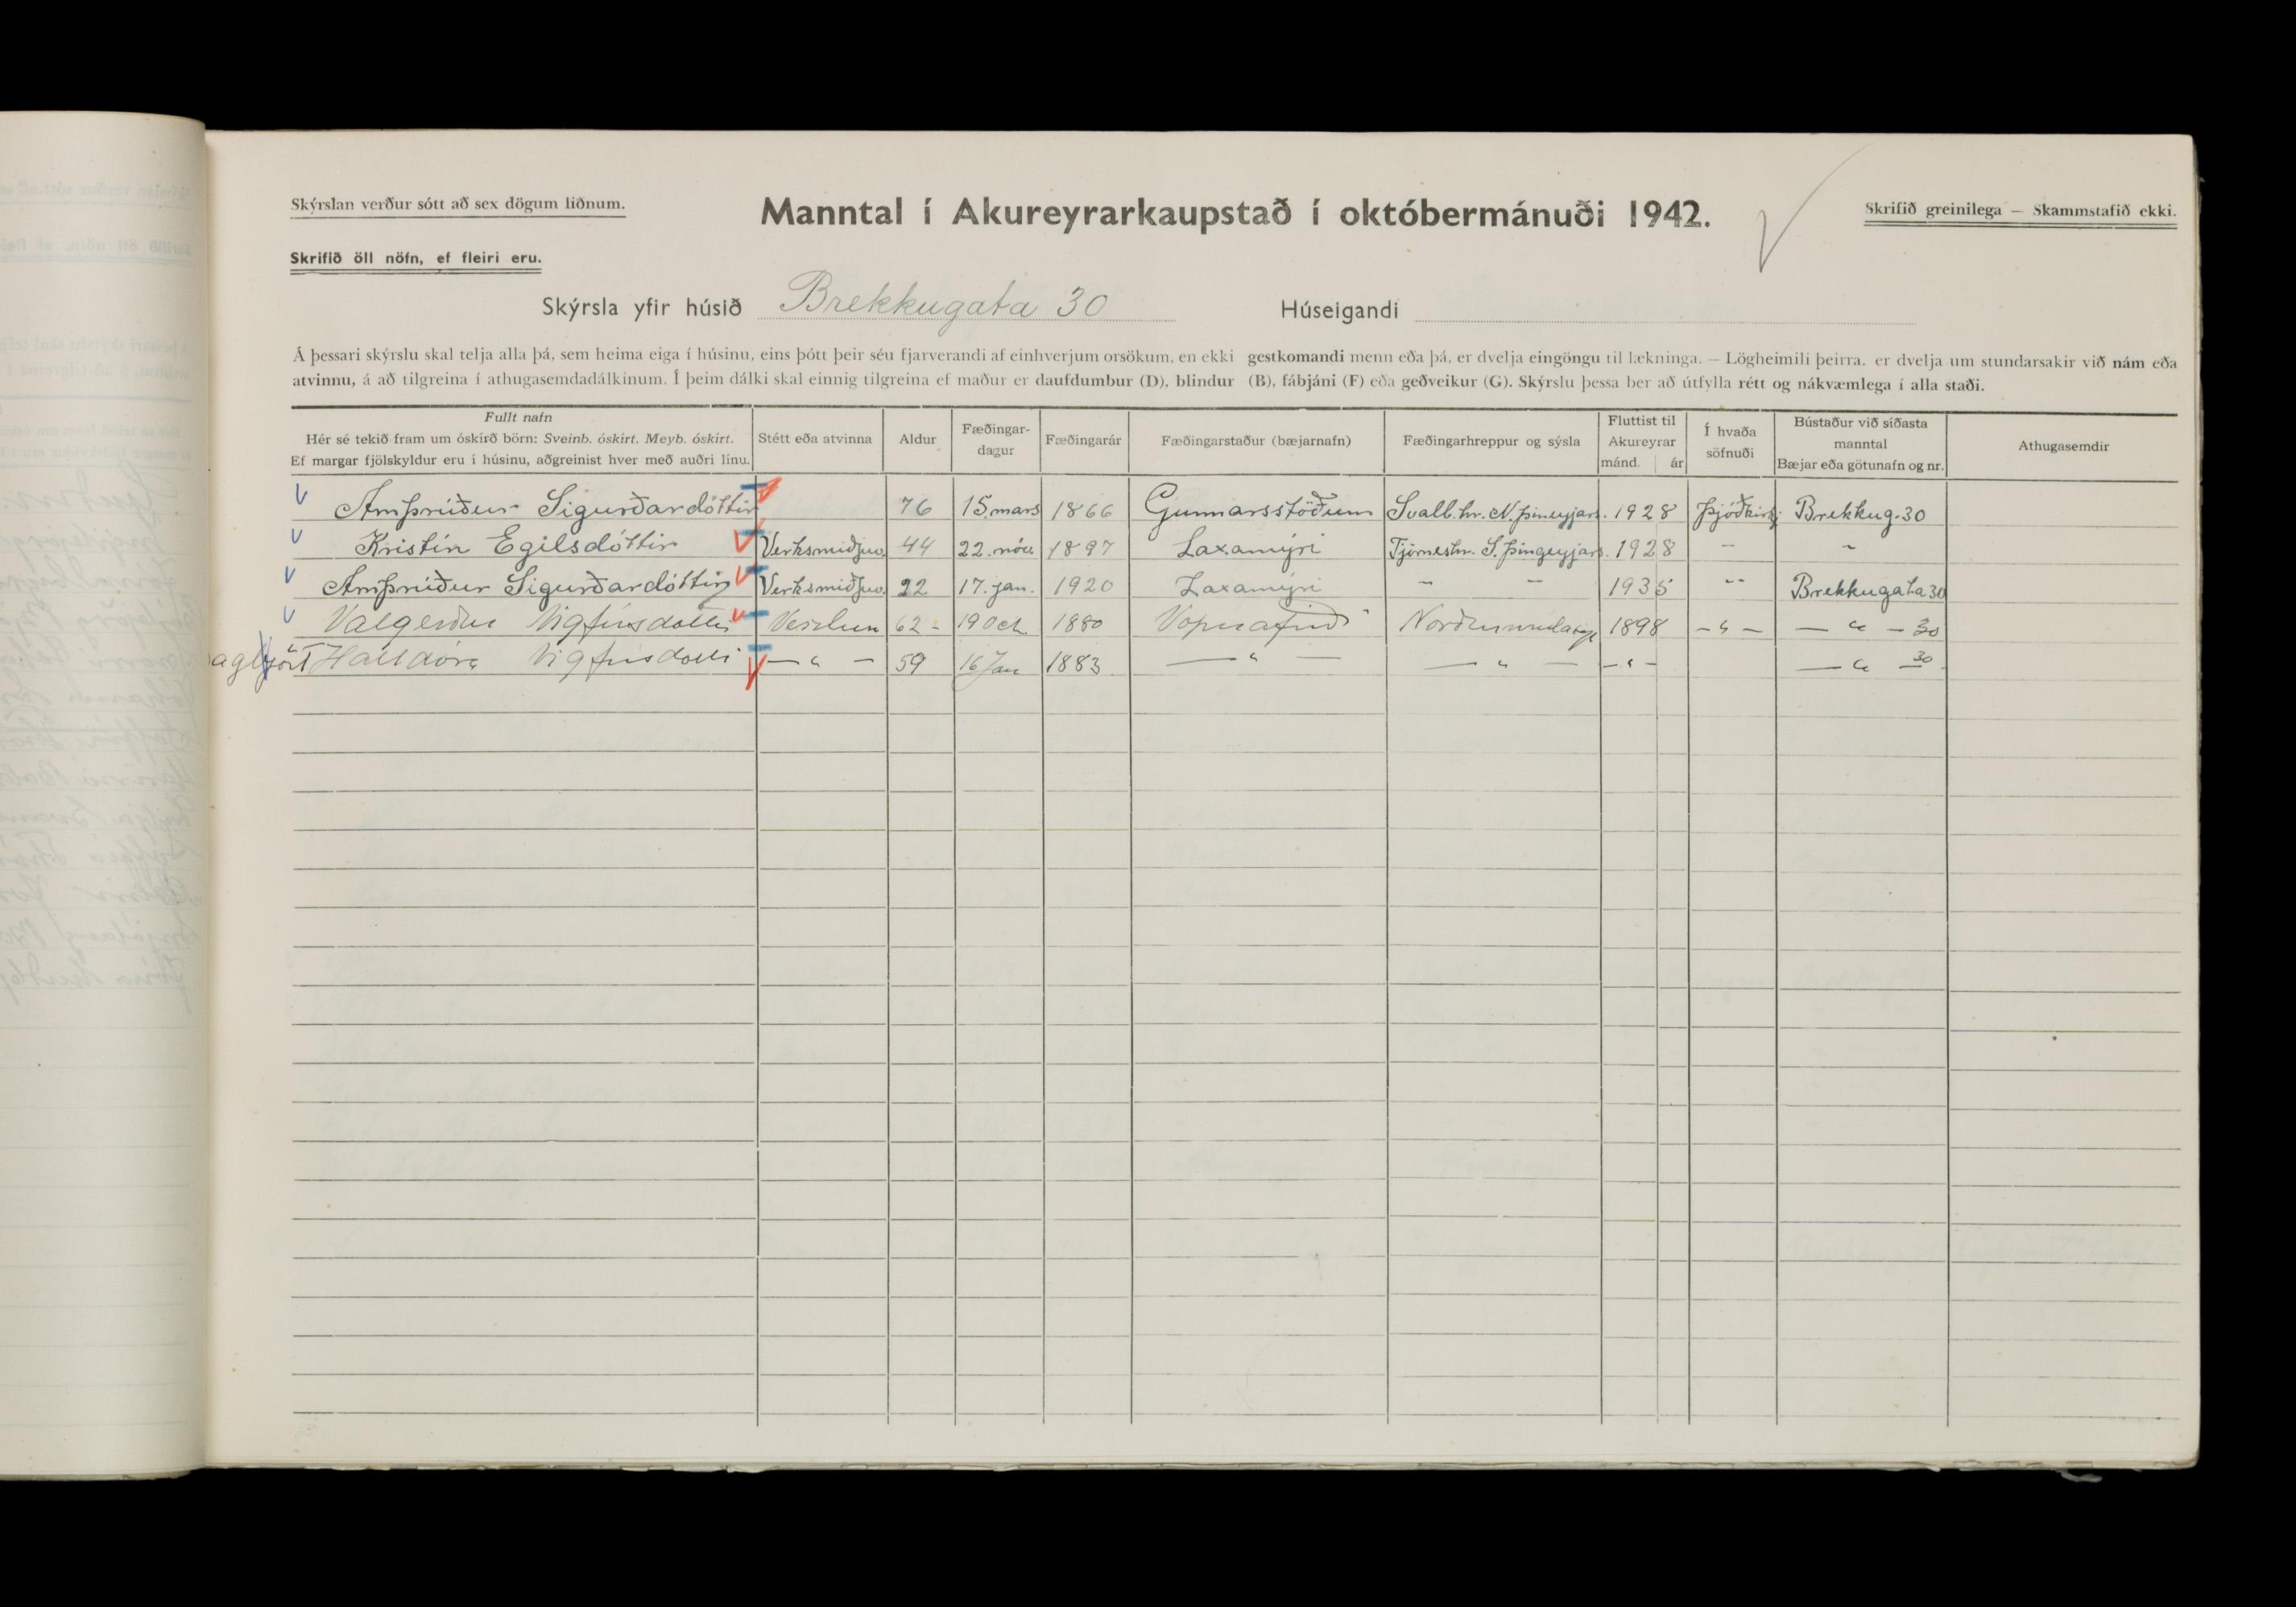 Skýrslan verður sótt að sex dögum liðnum.
Manntal í Akureyrarkaupstað í októbermánuði 1942.
Skrifið greinilega — Skammstafið ekki.
Skrifið öll nöfn, ef fleiri eru.
Skýrsla yfir húsið Brekkugata 30 Húseigandi
Á þessari skýrslu skal telja alla þá, sem heima eiga í húsinu, eins þótt þeir séu fjarverandi af einhverjum orsökum, en ekki gestkomandi menn eða þá, er dvelja eingöngu til lækninga. — Lögheimili þeirra, er dvelja um stundarsakir við nám eða
atvinnu, á að tilgreina í athugasemdadálkinum. Í þeim dálki skal einnig tilgreina ef maður er daufdumbur (D), blindur (B), fábjáni (F) eða geðveikur (G). Skýrslu þessa ber að útfylla rétt og nákvæmlega í alla staði.
Fullt nafn
Hér sé tekið fram um óskírð börn: Sveinb. óskírt. Meyb. óskírt.
Ef margar fjölskyldur eru í húsinu, aðgreinist hver með auðri línu.
Stétt eða atvinna
Aldur
Fæðingar-
dagur
Fæðingarár
Fæðingarstaður (bæjarnafn)
Fæðingarhreppur og sýsla
Fluttist til
Akureyrar
mánd. ár
Í hvaða
söfnuði
Bústaður við síðasta
manntal
Bæjar eða götunafn og nr.
Athugasemdir
Arnþrúður Sigurðardóttir 76 15. mars 1866 Gunnarsstöðum Svalb.hr. N. Þineyjars. 1928 Þjóðkirkj. Brekkug. 30
Kristín Egilsdóttir Verksmiðjuv. 44 22. nóv. 1897 Laxamýri Tjörneshr. S. Þingeyjars. 1928 — "
Arnþrúður Sigurðardóttir Verksmiðjuv. 22 17. jan. 1920 Laxamýri — — 1935 " Brekkugata 30
Valgerður Vigfúsdóttir Verzlun 62 - 19 Oct. 1880 Vopnafirði Norðurmúlasýsl 1898 — " — — " — 30
Hálldóra Vigfúsdóttir — " — 59 16 Jan 1883 — " — — " — — " — — " — 30